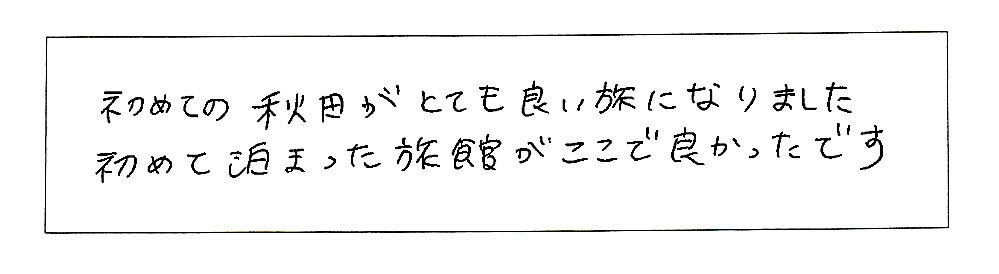 初めての秋田がとても良い旅になりました
初めて泊まった旅館がここで良かったです